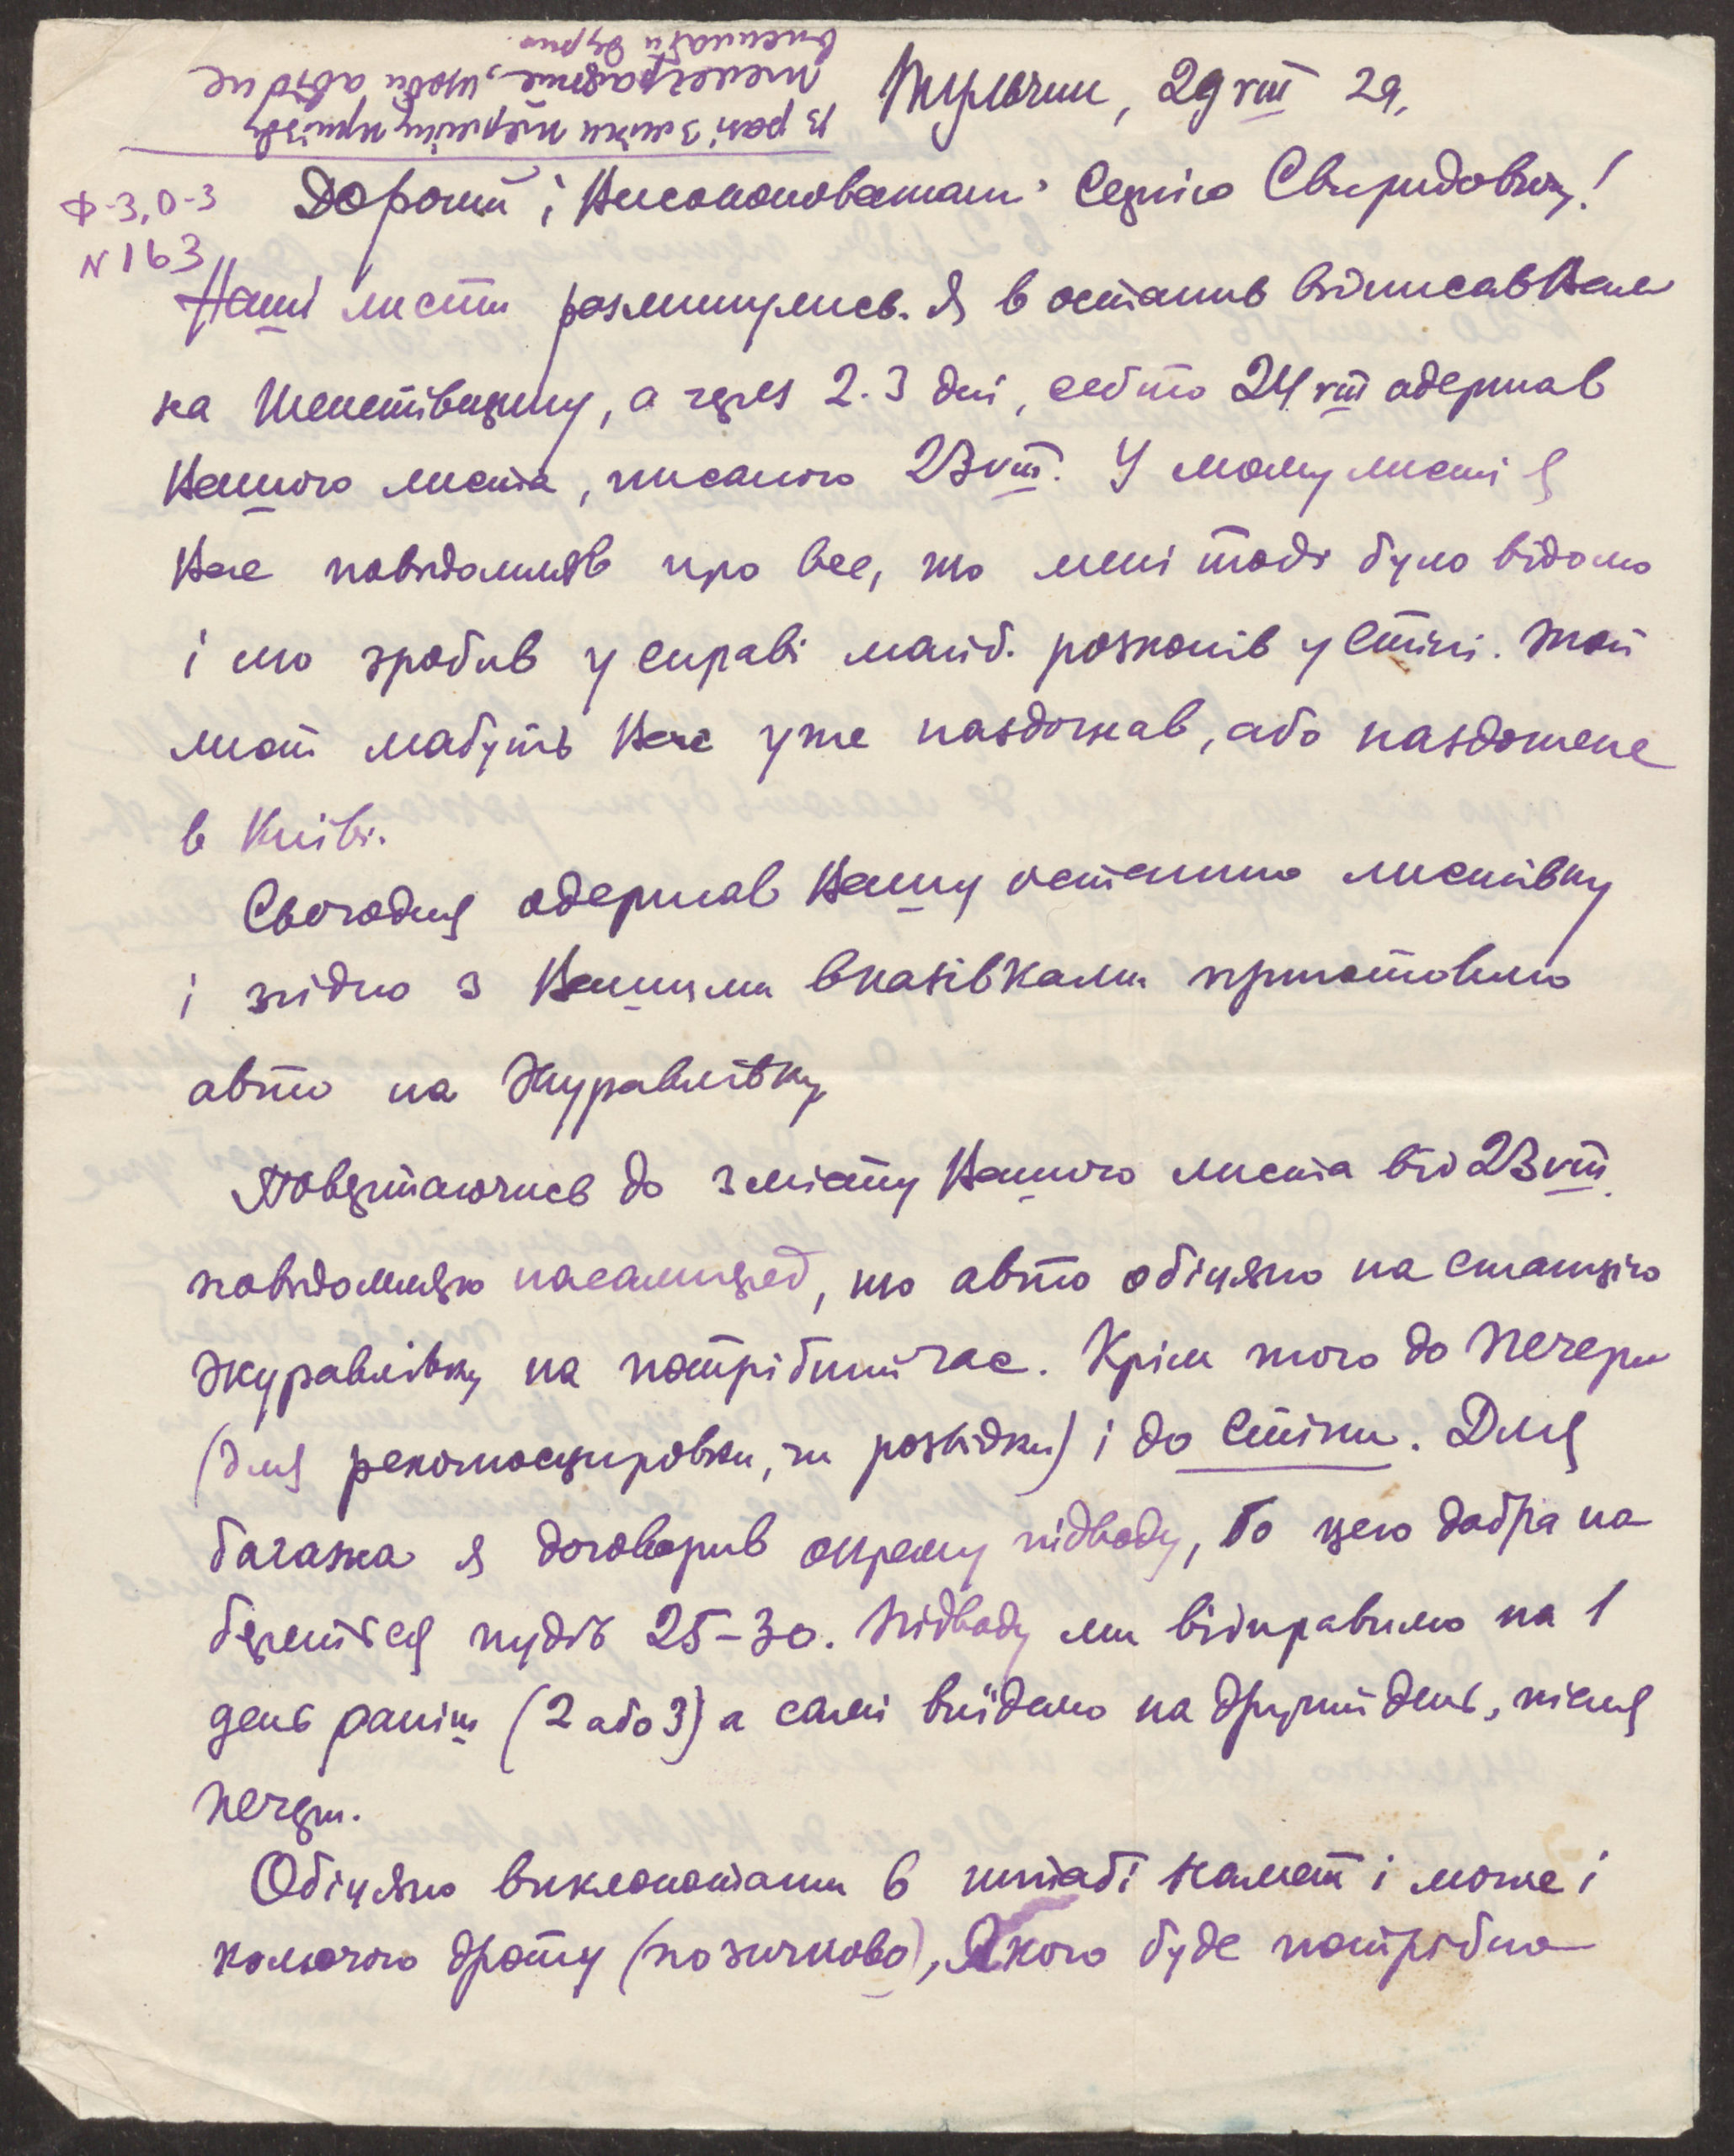 В разі зміни терміну приїзду
телеграфуйте, щоби авто не
висилати дурно.
Тульчин, 29 VIII 29,
Ф-3, О-3
N 163
Дорогий і Високоповажаний Сергію Свиридовичу!
Наші листи розминулись. Я в останнє відписав Вам
на Шепетівщину, а через 2-3 дні, себто 24 VIII одержав
Вашого листа, писаного 23 VIII. У мому листі я
Вас повідомляв про все, що мені тоді було відомо
і що зробив у справі майб. розкопів у Стіні. Той
лист мабуть Вас уже наздогнав, або наздожене
в Київі.
Сьогодня одержав Вашу останню листівку
і згідно з Вашими вказівками приготовлю
авто на Журавлівку
Повертаючись до змісту Вашого листа від 23 VIII
повідомляю насамперед, що авто обіцяно на станцію
Журавлівку на потрібний час. Крім того до Печери
(для рекогносцировки, чи розвідки) і до Стіни. Для
багажа я договорив окрему підводу, бо цего добра на
береться пудів 25-30. Підводу ми відправимо на 1
день раніш (2 або 3) а самі виїдемо на другий день, після
Печери.
Обіцяно виклопотати в штабі намет і може і
колючого дроту (позичково), якого буде потрібно